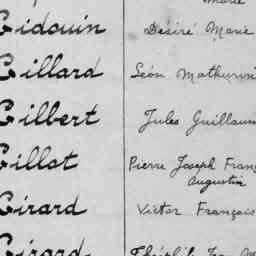 Marie
Gidouin Désiré Marie
Gillard Léon Mathurin
Gilbert Jules Guillaum
Gillot Pierre Joseph Franç
Augustin
Girard Victor François
Girard Théophile